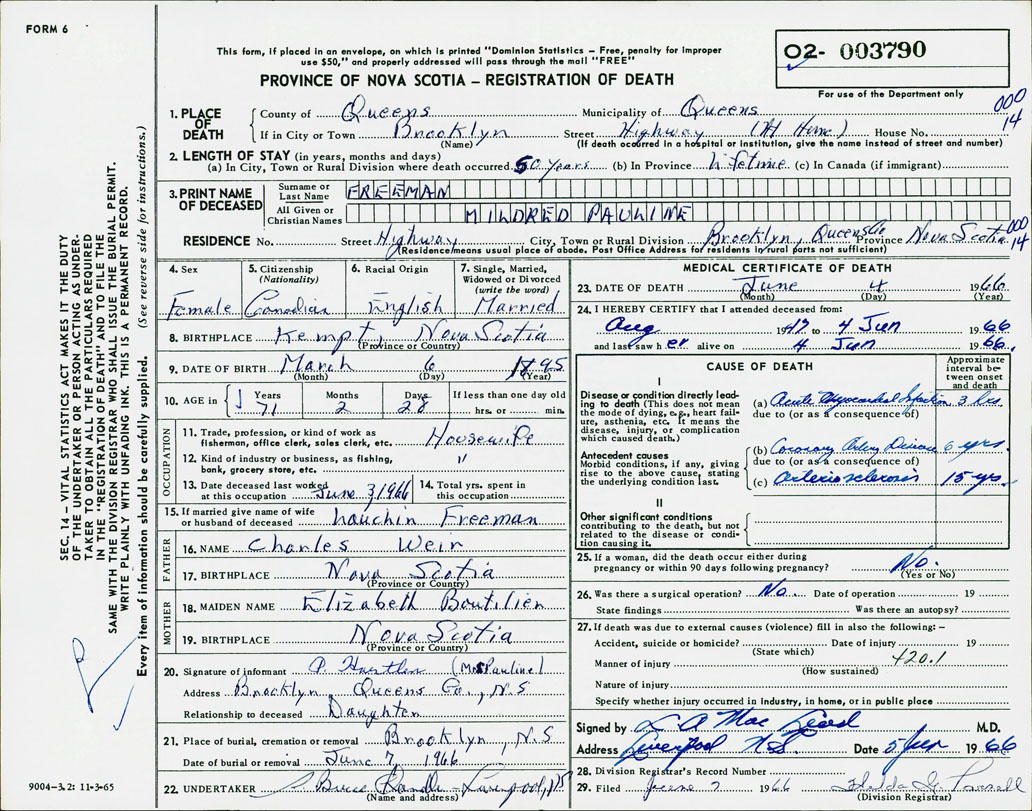 FORM 6
This form, if placed in an envelope, on which is printed "Dominion Statistics – Free, penalty for improper
use $50," and properly addressed will pass through the mail "FREE"
PROVINCE OF NOVA SCOTIA – REGISTRATION OF DEATH
02- 003790
For use of the Department only
000
14
1. PLACE OF DEATH
County of Queens Municipality of Queens
If in City or Town Brooklyn Street Highway (At Home) House No.
(Name) (If death occurred in a hospital or institution, give the name instead of street and number)
2. LENGTH OF STAY (in years, months and days)
(a) In City, Town or Rural Division where death occurred 50 years (b) In Province lifetime (c) In Canada (if immigrant)
3. PRINT NAME OF DECEASED
Surname or Last Name FREEMAN
All Given or Christian Names MILDRED PAULINE
RESIDENCE No. Street Highway City, Town or Rural Division Brooklyn, Queens Co Province Nova Scotia 000 14
(Residence means usual place of abode. Post Office Address for residents in rural parts not sufficient)
4. Sex Female
5. Citizenship (Nationality) Canadian
6. Racial Origin English
7. Single, Married, Widowed or Divorced (write the word) Married
8. BIRTHPLACE Kempt, Nova Scotia
(Province or Country)
9. DATE OF BIRTH March 6 1895
(Month) (Day) (Year)
10. AGE in Years 71 Months 2 Days 28 If less than one day old hrs. or min.
OCCUPATION
11. Trade, profession, or kind of work as fisherman, office clerk, sales clerk, etc. Housewife
12. Kind of industry or business, as fishing, bank, grocery store, etc. "
13. Date deceased last worked at this occupation June 3, 1966
14. Total yrs. spent in this occupation
15. If married give name of wife or husband of deceased Lauchin Freeman
FATHER
16. NAME Charles Weir
17. BIRTHPLACE Nova Scotia
(Province or Country)
MOTHER
18. MAIDEN NAME Elizabeth Boutilier
19. BIRTHPLACE Nova Scotia
(Province or Country)
20. Signature of informant P. (Mrs Pauline)
Address Brooklyn, Queens Co., N.S
Relationship to deceased Daughter
21. Place of burial, cremation or removal Brooklyn, N.S
Date of burial or removal June 7, 1966
22. UNDERTAKER Liverpool, NS
(Name and address)
MEDICAL CERTIFICATE OF DEATH
23. DATE OF DEATH June 4 1966
(Month) (Day) (Year)
24. I HEREBY CERTIFY that I attended deceased from:
Aug 1947 to 4 Jun 1966
and last saw her alive on 4 Jun 1966.
CAUSE OF DEATH
Approximate interval between onset and death
I
Disease or condition directly leading to death (This does not mean the mode of dying, e.g., heart failure, asthenia, etc. It means the disease, injury, or complication which caused death.)
(a) Acute Myocardial Infarction 3 hrs
due to (or as a consequence of)
Antecedent causes
Morbid conditions, if any, giving rise to the above cause, stating the underlying condition last.
(b) Coronary Artery Disease 6 yrs
due to (or as a consequence of)
(c) Arteriosclerosis 15 yrs.
II
Other significant conditions
contributing to the death, but not related to the disease or condition causing it.
25. If a woman, did the death occur either during pregnancy or within 90 days following pregnancy? No.
(Yes or No)
26. Was there a surgical operation? No. Date of operation 19
State findings Was there an autopsy?
27. If death was due to external causes (violence) fill in also the following: –
Accident, suicide or homicide? Date of injury 19
(State which)
Manner of injury 420.1
(How sustained)
Nature of injury
Specify whether injury occurred in industry, in home, or in public place
Signed by M.D.
Address Liverpool N.S. Date 5 Jun 1966
28. Division Registrar's Record Number
29. Filed June 7 1966
(Division Registrar)
SEC. 14 – VITAL STATISTICS ACT MAKES IT THE DUTY
OF THE UNDERTAKER OR PERSON ACTING AS UNDER-
TAKER TO OBTAIN ALL THE PARTICULARS REQUIRED
IN THE "REGISTRATION OF DEATH" AND TO FILE THE
SAME WITH THE DIVISION REGISTRAR WHO SHALL ISSUE THE BURIAL PERMIT.
WRITE PLAINLY WITH UNFADING INK. THIS IS A PERMANENT RECORD.
Every item of information should be carefully supplied. (See reverse side for instructions.)
9004-3.2: 11-3-65